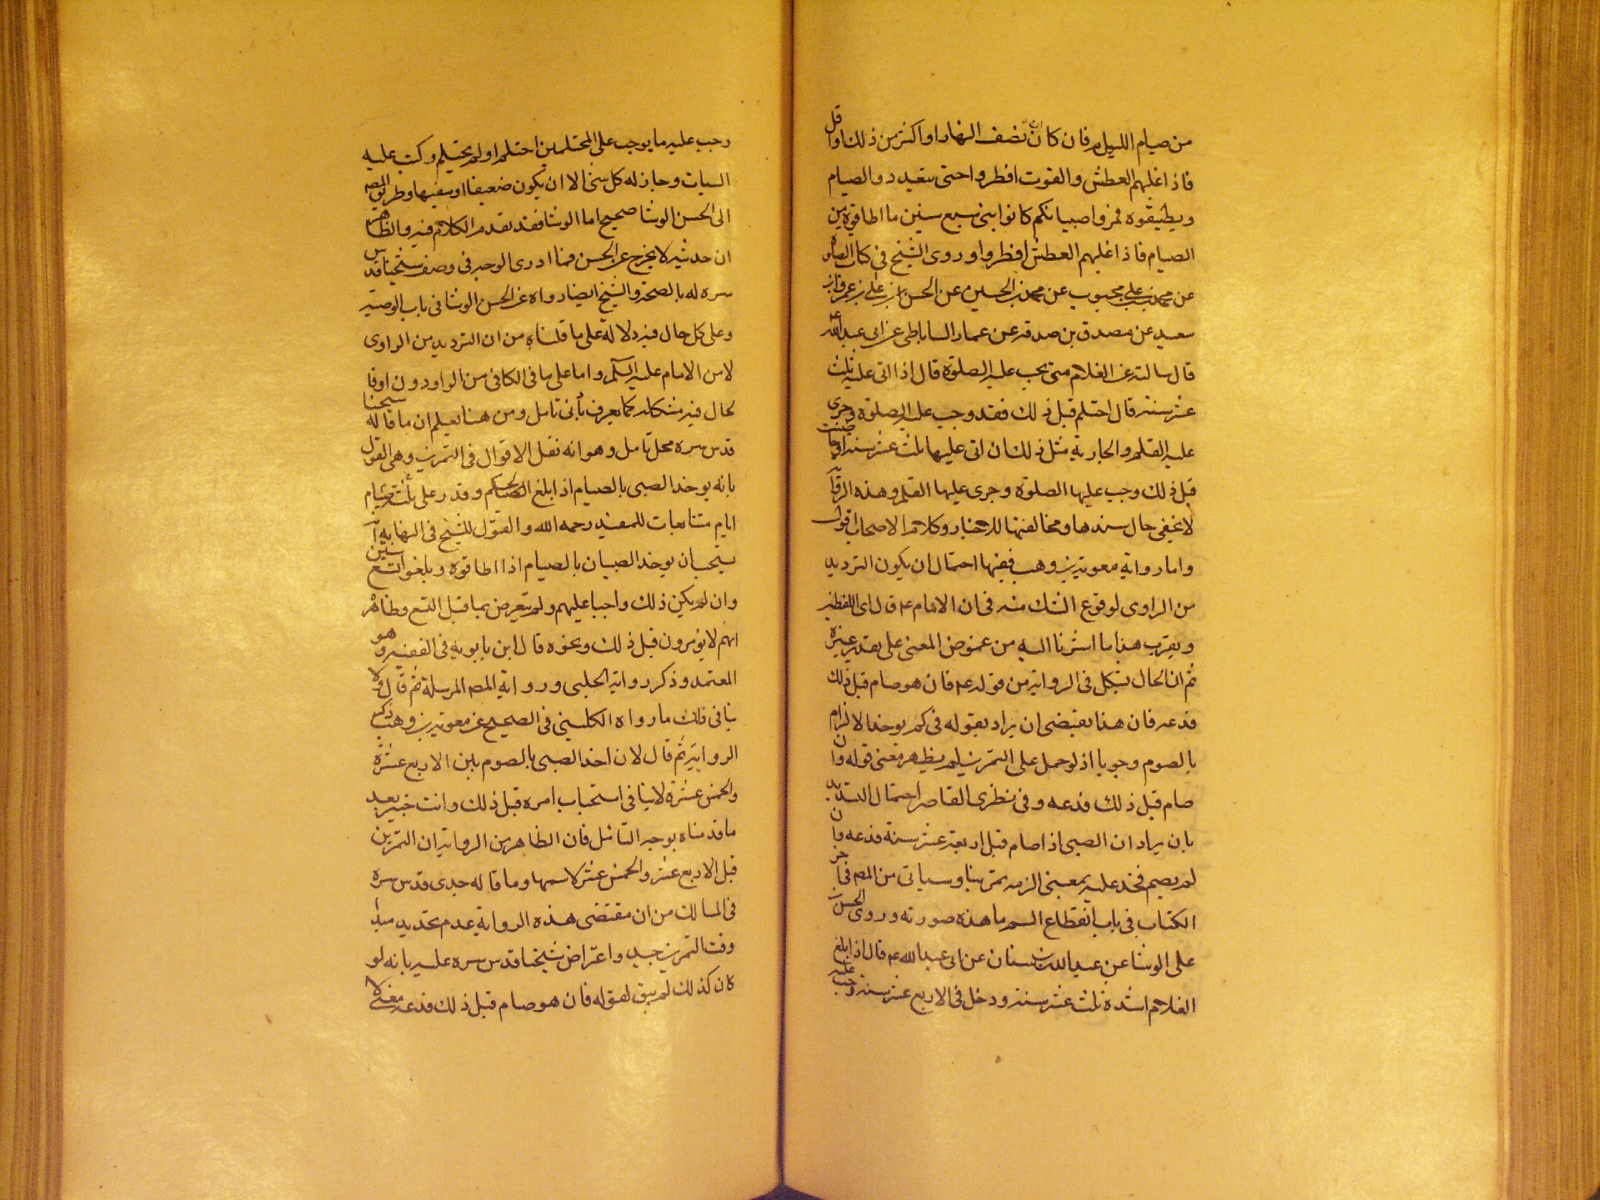 من صيام الليل م فان كان نصف النهار او اكثر من ذلك او اقل
فاذا غلبهم العطش والفوت افطروا حتى يتعودوا الصيام
ويطيقوه فمروا صبيانكم كانوا بنى سبع سنين ما اطاقوه من
الصيام فاذا غلبهم العطش افطروا وروى الشيخ فى كتاب الصلوه
عن محمد بن على بن محبوب عن محمد بن الحسين عن الحسن بن على عن عمرو بن
سعيد عن مصدق بن صدقه عن عمار الساباطى عن ابى عبد الله ع
قال سالته عن الغلام متى يجب عليه الصلوة قال اذا اتى عليه ثلث
عشر سنة قال احتلم قبل ذلك فقد وجب عليه الصلوة وجرى
عليه القلم والجارية مثل ذلك ان اتى عليها ثلث عشر سنة او حاضت
قبل ذلك وجب عليها الصلوة وجرى عليها القلم وهذه الرواية
لا يخفى حال سندها ومخالفتها للاخبار وكلام الاصحاب اقول
واما رواية معوية بن وهب ففيها احتمال ان يكون الترديد
من الراوى لوقوع الشك منه فى ان الامام ع قال اى اللفظين
ويقرب هذا ما اشرنا اليه من غموض المعنى على تقدير غيره
ثم ان الحال يشكل فى الرواية من قوله ع فان هو صام قبل ذلك
فدعه فان هذا يقتضى ان يراد بقوله فى كم يوخذ الالزام
بالصوم وجوبا اذ لو حمل على التمرين لم يظهر معنى قوله وان
صام قبل ذلك فدعه وفى نظرى القاصر احتمال التسديد
بان يراد ان الصبى اذا صام قبل اربعة عشر سنة فدعه وان
لم يصم فخذ عليه بمعنى الزمه تمرينا وسياتى من المصـ فى اخر
الكتاب فى باب انقطاع اليتم ما هذه صورته وروى الحسن بن
على الوشا عن عبد الله بن سنان عن ابى عبد الله ع قال اذا بلغ
الغلام اشده ثلث عشر سنة ودخل فى الاربع عشر سنة وجب عليه
وجب عليه ما يوجب على المحتلمين احتلم او لم يحتلم وكتب عليه
السيات وجاز له كل شئ الا ان يكون ضعيفا او سفيها وطريق المصـ
الى الحسن الوشا صحيح اما الوشا فقد تقدم الكلام فيه والظاهر
ان حديثه لا يخرج عن الحسن فما ادرى الوجه فى وصف شيخنا قدس
سره له بالصحة والشيخ ايضا رواه عن الحسن الوشا فى باب الوصية
وعلى كل حال فيه دلالة على ما قلناه من ان الترديد من الراوى
لا من الامام عليه السلم واما على ما فى الكافى من الواو دون او فا
لحال فيه مشكله كما يعرف بأدنى تامل ومن هنا يعلم ان ما قاله شيخنا
قدس سره محل تامل وهو انه نقل الاقوال فى التمرين وهى القول
بانه يوخذ الصبى بالصيام اذا بلغ الحلم وقدر على صيام ثلثة
ايام متتابعات للمفيد رحمه الله والقول للشيخ فى النهاية انه
يستحب ان يوخذ الصبيان بالصيام اذا اطاقوه وبلغوا تسع سنين
وان لم يكن ذلك واجبا عليهم ولم يتعرض بما قبل التسع وظاهره
انهم لا يؤمرون قبل ذلك ونحوه قال ابن بابويه فى الفقيه وهو
المعتمد وذكر رواية الحلبى ورواية المصـ المرسلة ثم قال ولا
ينافى ذلك ما رواه الكلينى فى الصحيح عن معوية بن وهب وذكر
الرواية ثم قال لان اخذ الصبى بالصوم بين الاربع عشرة
والخمس عشرة لا ينافى استحباب امره قبل ذلك وانت خبير بعد
ما قدمناه بوجه التامل فان الظاهر من الرواية ان التمرين
قبل الاربع عشر والخمس عشر كاسمها وما قاله جدى قدس سره
فى المسالك من ان مقتضى هذه الرواية عدم تحديد مبدأ
وقت التمرين جيد واعتراض شيخنا قدس سره عليه بانه لو
كان كذلك لم يبق لقوله فان هو صام قبل ذلك فدعه معنى لا